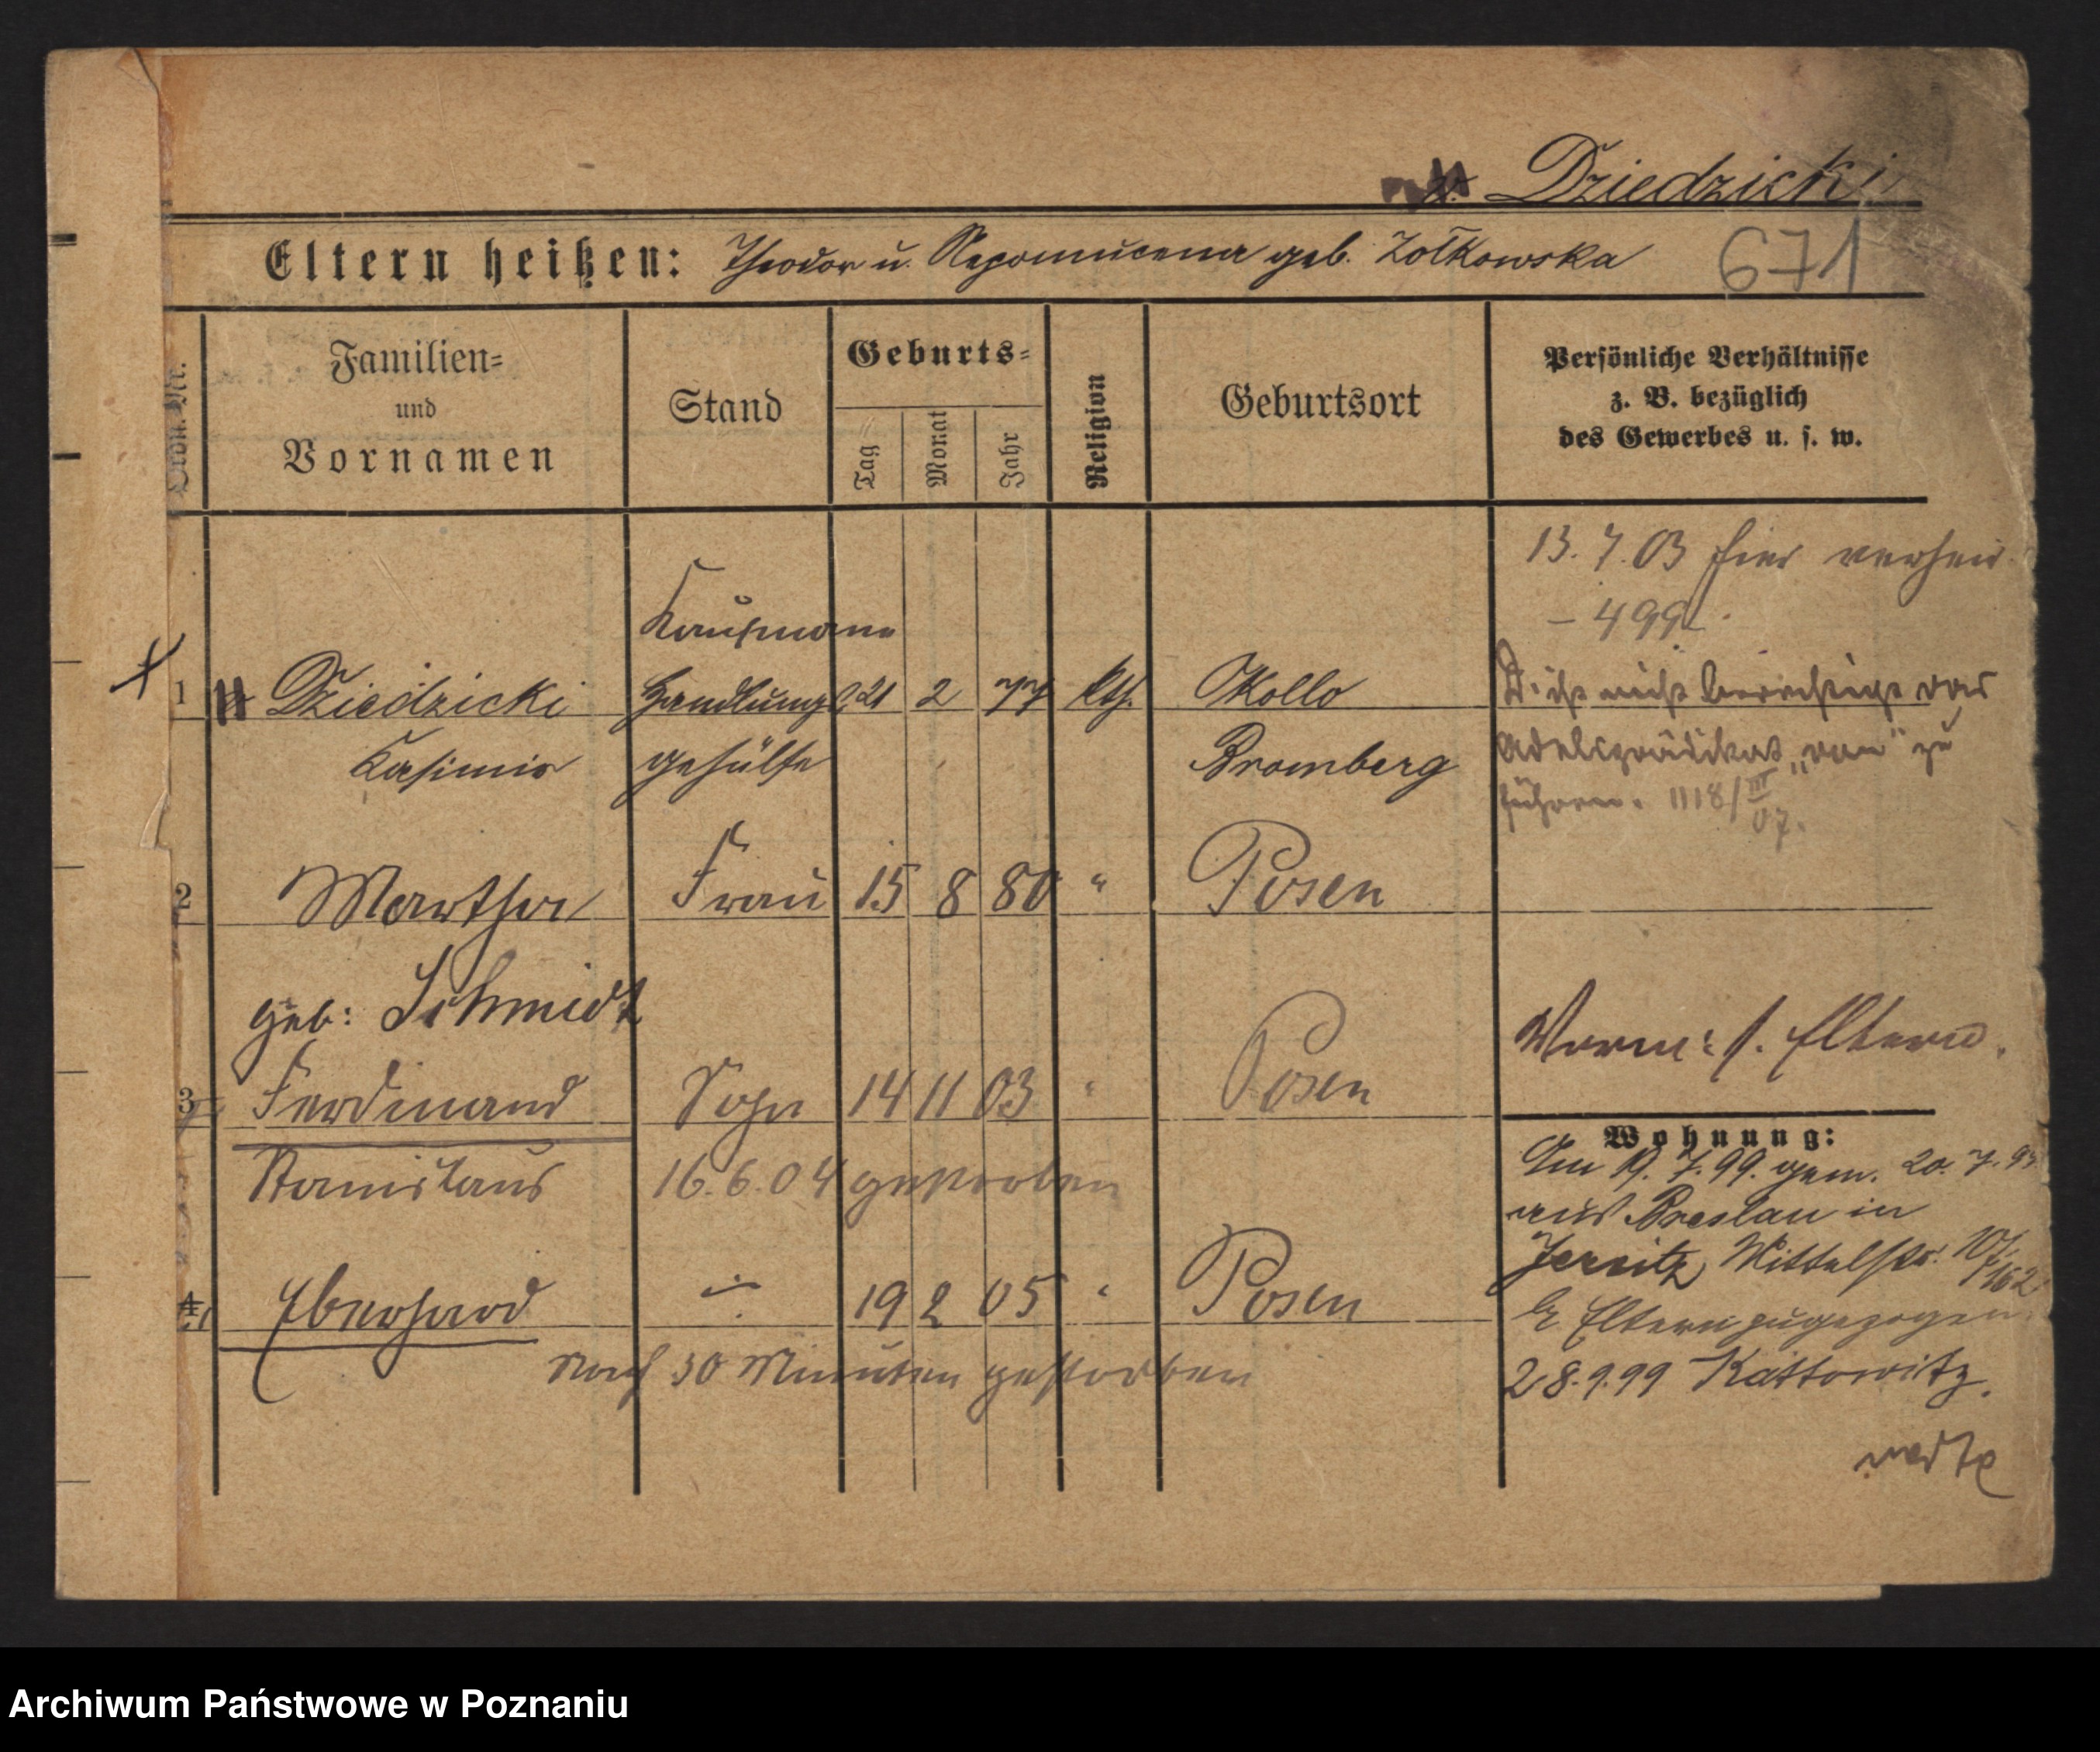 v. Dziedzicki
Eltern heißen: Theodor u. Nepomucena geb. Zołkowska 671
Ordn. Nr.
Familien=
und
Vornamen
Stand
Geburts=
Tag
Monat
Jahr
Religion
Geburtsort
Persönliche Verhältnisse
z. B. bezüglich
des Gewerbes u. s. w.
13. 7. 03 hier verheir.
– 499
Kaufmann
1 Dziedzicki Handlungs 21 2 77 kth. Mollo
D. ist nicht berechtigt das
Kasimir gehülfe Bromberg
Adelsprädikat „von" zu
führen. 1118/III 07.
2 Martha Frau 15 8 80 " Posen
geb: Schmidt
Vorm: s. Eltern.
3 Ferdinand Sohn 14 11 03 " Posen
Stanislaus 16. 6. 04 gestorben
Wohnung:
Am 19. 7. 99. gem. 20. 7. 99
aus Breslau in
Jersitz, Mittelstr.
4 Eberhard 19 2 05 " Posen
Eltern zugezogen
nach 30 Minuten gestorben
28. 9. 99 Kattowitz.
Archiwum Państwowe w Poznaniu